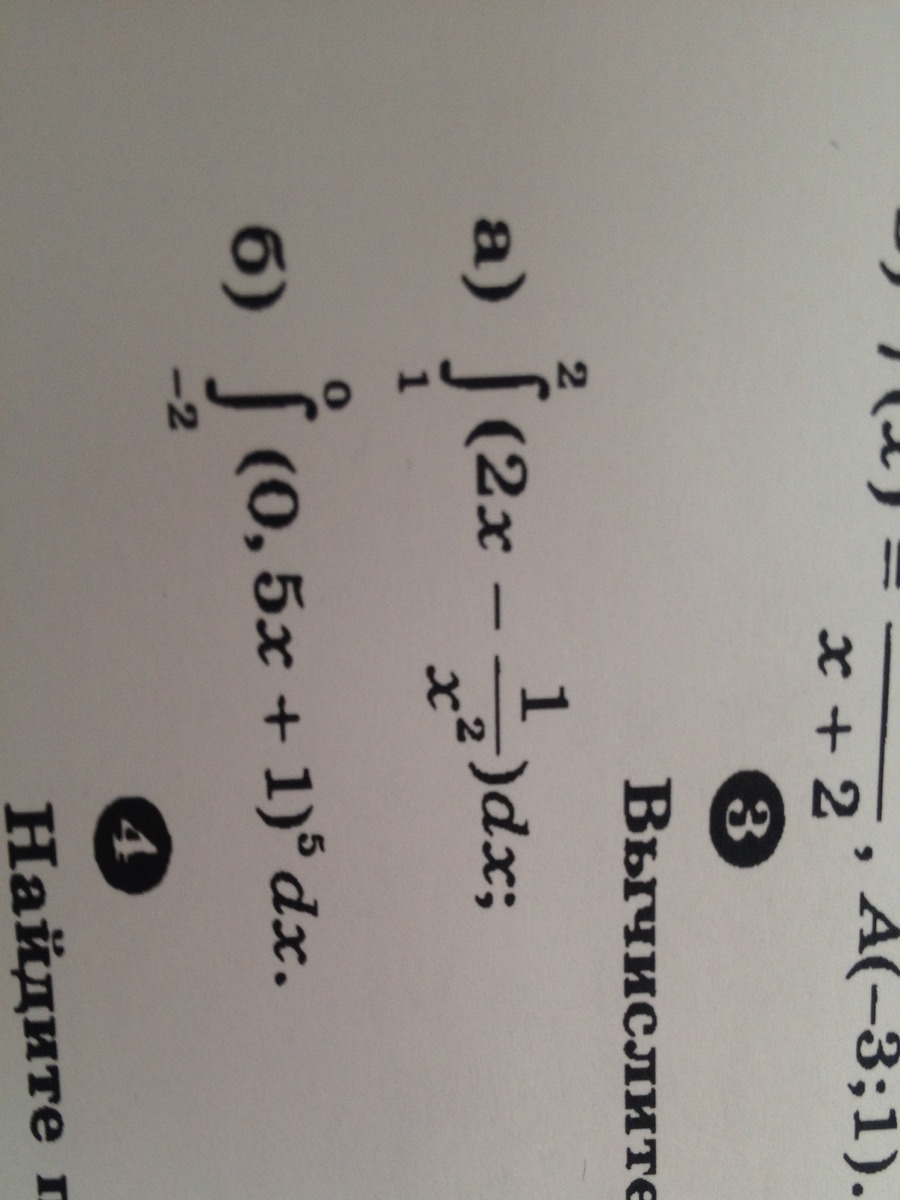 f(x) = / x + 2 , A(−3;1).
3
Вычислите
а) ∫₁² (2x − 1/x²)dx;
б) ∫₋₂⁰ (0,5x + 1)⁵ dx.
4
Найдите